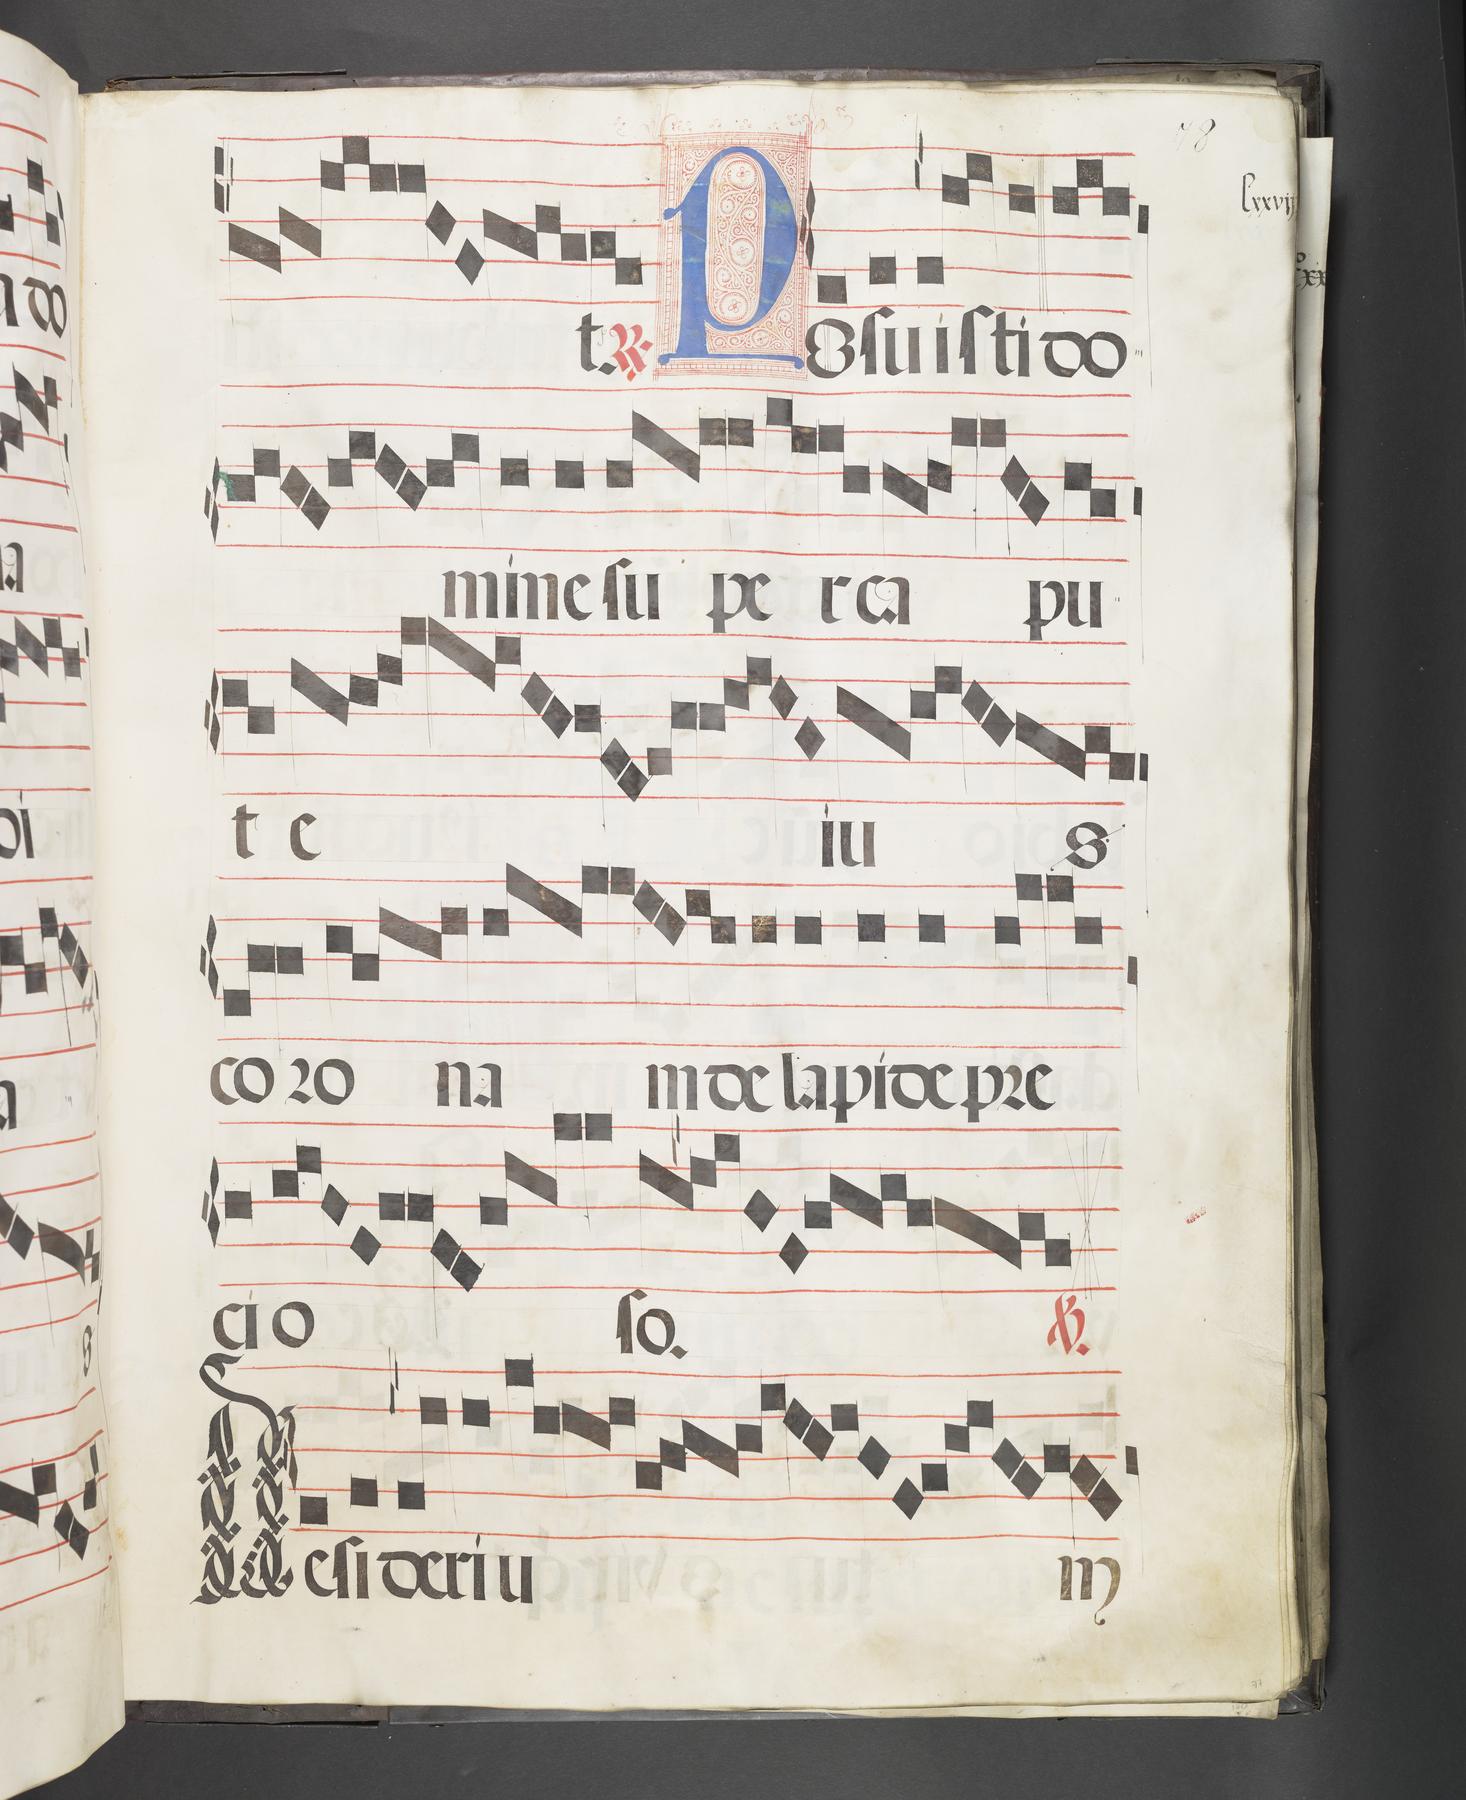 78
lxxvij
t. ℟ Posuisti do
mine su pe r ca pu
t e iu s
co ro na m de lapide pre
ci o so. ℣.
Desideriu m
77